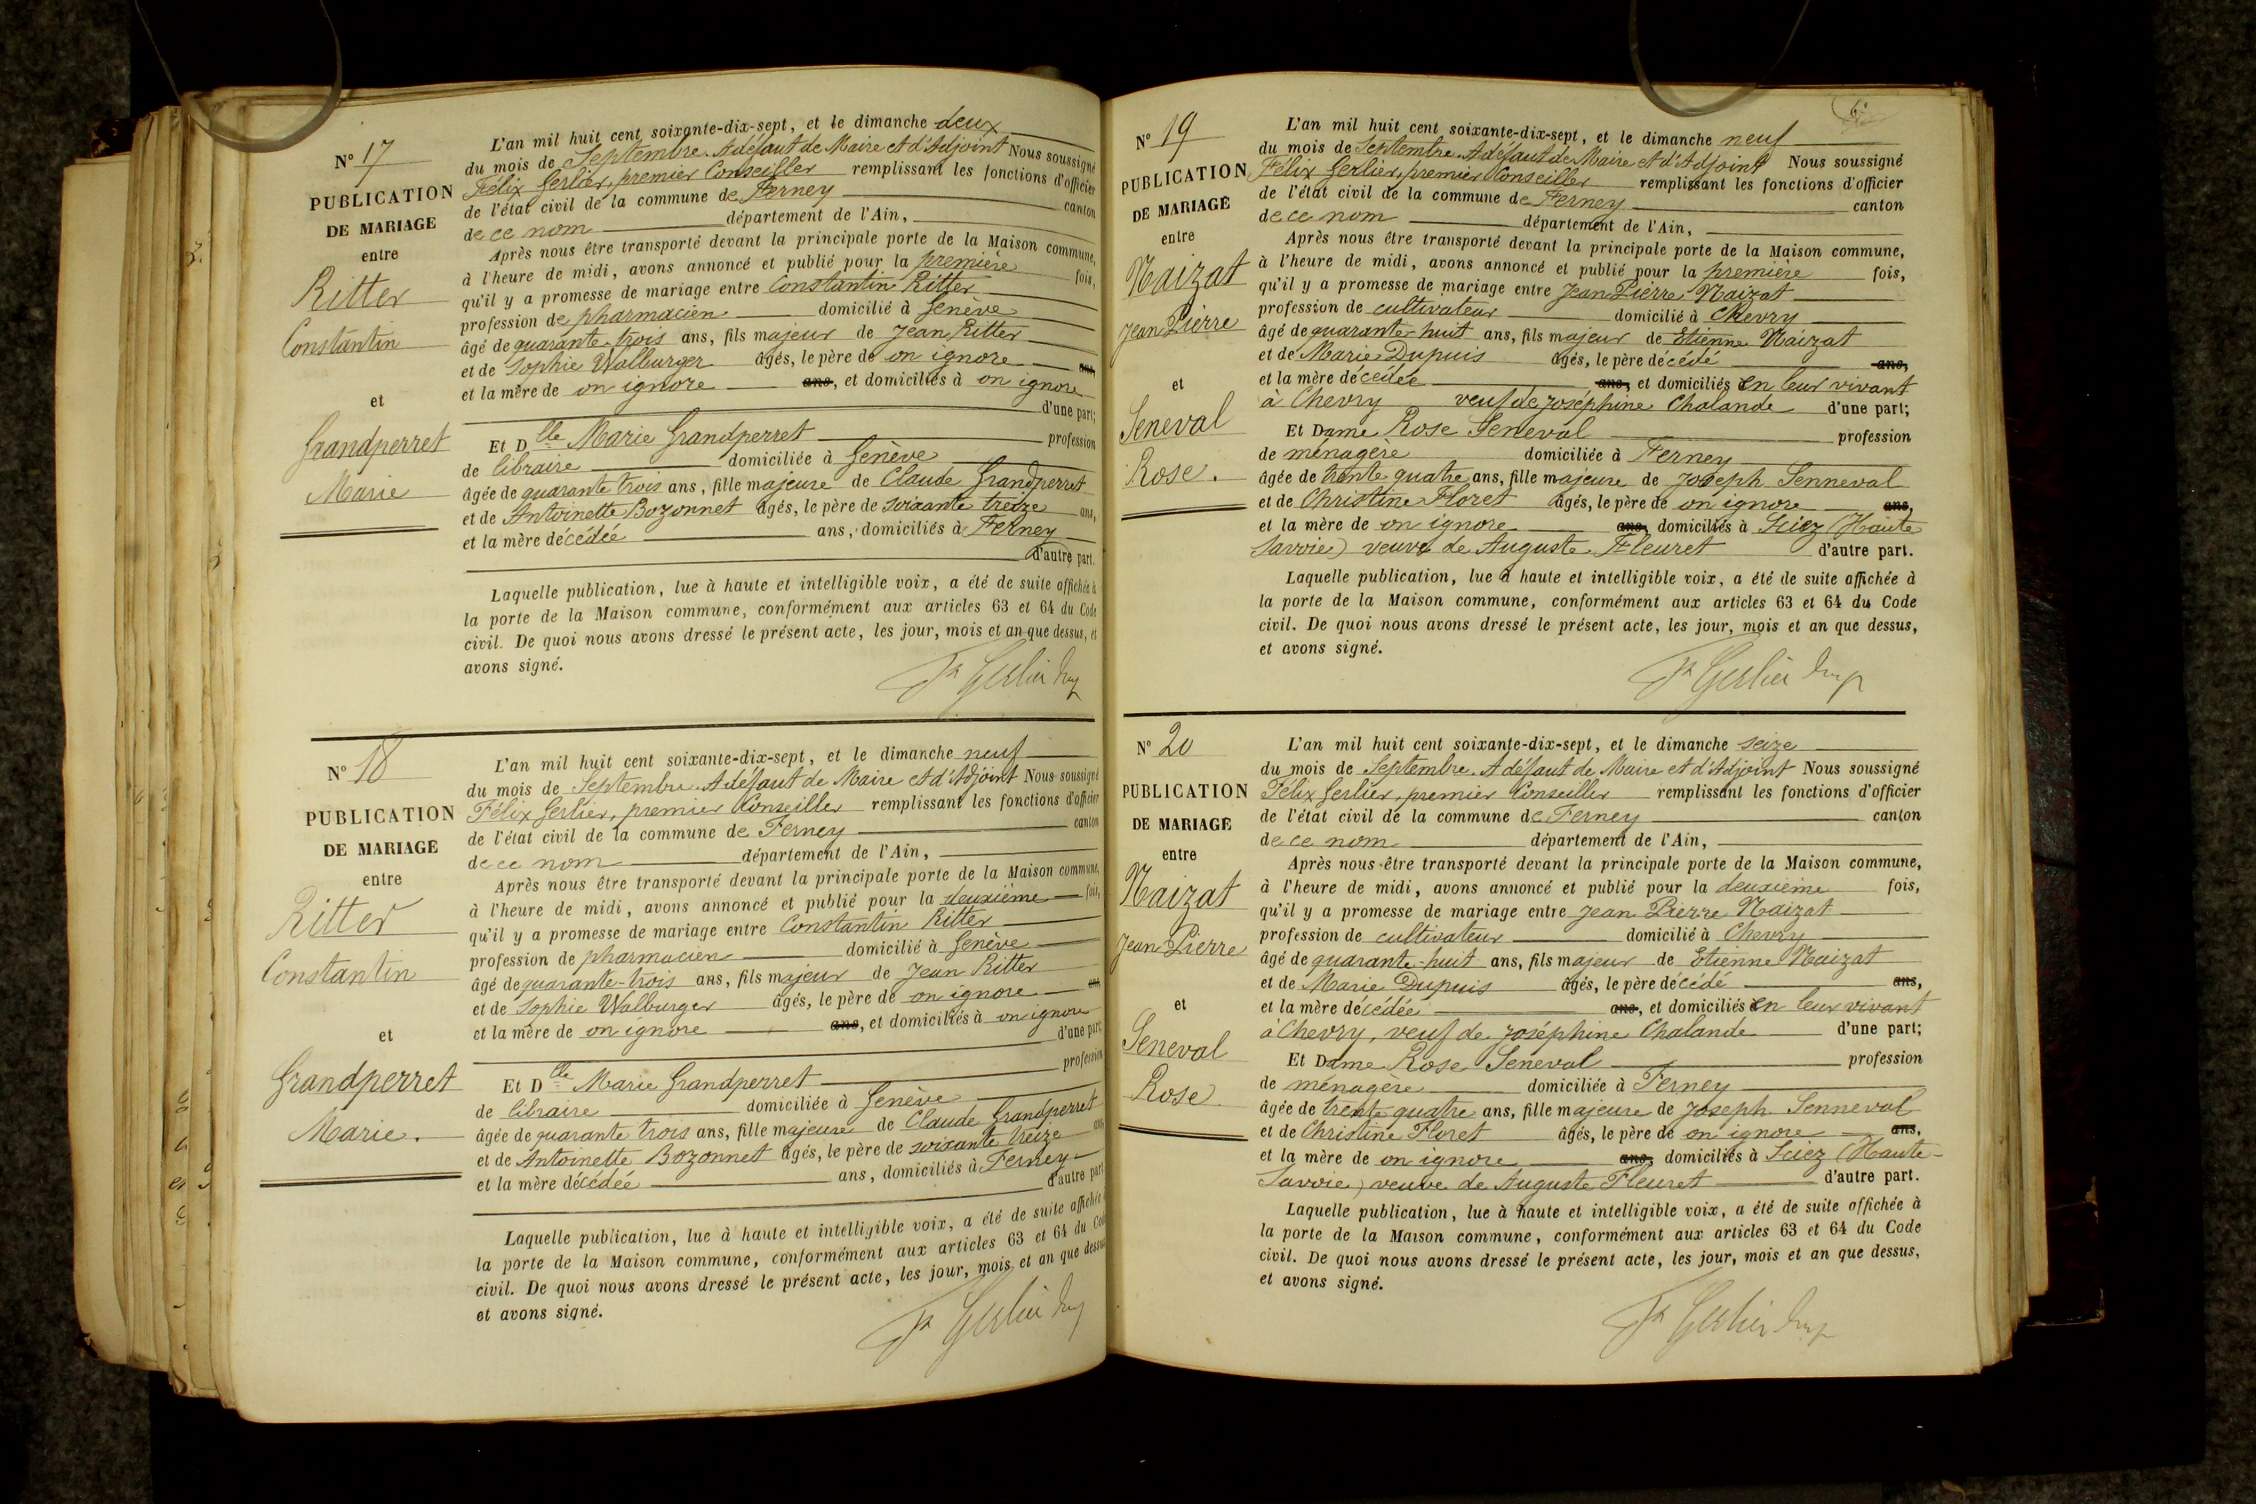 N° 17
PUBLICATION
DE MARIAGE
entre
Ritter
Constantin
et
Grandperret
Marie
L'an mil huit cent soixante-dix-sept, et le dimanche deux
du mois de Septembre. A défaut de Maire et d'Adjoint Nous soussigné
Félix Gerlier, premier Conseiller remplissant les fonctions d'officier
de l'état civil de la commune de Ferney canton
de ce nom département de l'Ain,
Après nous être transporté devant la principale porte de la Maison commune,
à l'heure de midi, avons annoncé et publié pour la première fois,
qu'il y a promesse de mariage entre Constantin Ritter
profession de pharmacien domicilié à Genève
âgé de quarante trois ans, fils majeur de Jean Ritter
et de Sophie Walburger âgés, le père de on ignore ans,
et la mère de on ignore ans, et domiciliés à on ignore
d'une part;
Et Dlle Marie Grandperret profession
de libraire domiciliée à Genève
âgée de quarante trois ans, fille majeure de Claude Grandperret
et de Antoinette Bozonnet âgés, le père de soixante treize ans,
et la mère décédée ans, domiciliés à Ferney
d'autre part.
Laquelle publication, lue à haute et intelligible voix, a été de suite affichée à
la porte de la Maison commune, conformément aux articles 63 et 64 du Code
civil. De quoi nous avons dressé le présent acte, les jour, mois et an que dessus, et
avons signé.
Fx Gerlier
N° 18
PUBLICATION
DE MARIAGE
entre
Ritter
Constantin
et
Grandperret
Marie.
L'an mil huit cent soixante-dix-sept, et le dimanche neuf
du mois de Septembre. A défaut de Maire et d'Adjoint Nous soussigné
Félix Gerlier, premier Conseiller remplissant les fonctions d'officier
de l'état civil de la commune de Ferney canton
de ce nom département de l'Ain,
Après nous être transporté devant la principale porte de la Maison commune,
à l'heure de midi, avons annoncé et publié pour la deuxième fois,
qu'il y a promesse de mariage entre Constantin Ritter
profession de pharmacien domicilié à Genève
âgé de quarante-trois ans, fils majeur de Jean Ritter
et de Sophie Walburger âgés, le père de on ignore ans
et la mère de on ignore ans, et domiciliés à on ignore
d'une part
Et Dlle Marie Grandperret profession
de libraire domiciliée à Genève
âgée de quarante trois ans, fille majeure de Claude Grandperret
et de Antoinette Bozonnet âgés, le père de soixante treize ans
et la mère décédée ans, domiciliés à Ferney
d'autre part
Laquelle publication, lue à haute et intelligible voix, a été de suite affichée à
la porte de la Maison commune, conformément aux articles 63 et 64 du Code
civil. De quoi nous avons dressé le présent acte, les jour, mois et an que dessus
et avons signé.
Fx Gerlier
N° 19
PUBLICATION
DE MARIAGE
entre
Naizat
Jean Pierre
et
Seneval
Rose.
L'an mil huit cent soixante-dix-sept, et le dimanche neuf
du mois de Septembre. A défaut de Maire et d'Adjoint Nous soussigné
Félix Gerlier, premier Conseiller remplissant les fonctions d'officier
de l'état civil de la commune de Ferney canton
de ce nom département de l'Ain,
Après nous être transporté devant la principale porte de la Maison commune,
à l'heure de midi, avons annoncé et publié pour la première fois,
qu'il y a promesse de mariage entre Jean Pierre Naizat
profession de cultivateur domicilié à Chevry
âgé de quarante-huit ans, fils majeur de Etienne Naizat
et de Marie Dupuis âgés, le père décédé ans,
et la mère décédée ans, et domiciliés en leur vivant
à Chevry veuf de Joséphine Chalande d'une part;
Et Dame Rose Seneval profession
de ménagère domiciliée à Ferney
âgée de trente quatre ans, fille majeure de Joseph Senneval
et de Christine Floret âgés, le père de on ignore ans,
et la mère de on ignore ans, domiciliés à Sciez (Haute
Savoie) veuve de Auguste Fleuret d'autre part.
Laquelle publication, lue à haute et intelligible voix, a été de suite affichée à
la porte de la Maison commune, conformément aux articles 63 et 64 du Code
civil. De quoi nous avons dressé le présent acte, les jour, mois et an que dessus,
et avons signé.
Fx Gerlier
N° 20
PUBLICATION
DE MARIAGE
entre
Naizat
Jean Pierre
et
Seneval
Rose
L'an mil huit cent soixante-dix-sept, et le dimanche seize
du mois de Septembre. A défaut de Maire et d'Adjoint Nous soussigné
Félix Gerlier, premier Conseiller remplissant les fonctions d'officier
de l'état civil de la commune de Ferney canton
de ce nom département de l'Ain,
Après nous être transporté devant la principale porte de la Maison commune,
à l'heure de midi, avons annoncé et publié pour la deuxième fois,
qu'il y a promesse de mariage entre Jean Pierre Naizat
profession de cultivateur domicilié à Chevry
âgé de quarante-huit ans, fils majeur de Etienne Naizat
et de Marie Dupuis âgés, le père décédé ans,
et la mère décédée ans, et domiciliés en leur vivant
à Chevry, veuf de Joséphine Chalande d'une part;
Et Dame Rose Seneval profession
de ménagère domiciliée à Ferney
âgée de trente quatre ans, fille majeure de Joseph Senneval
et de Christine Floret âgés, le père de on ignore ans,
et la mère de on ignore ans, domiciliés à Sciez (Haute-
Savoie) veuve de Auguste Fleuret d'autre part.
Laquelle publication, lue à haute et intelligible voix, a été de suite affichée à
la porte de la Maison commune, conformément aux articles 63 et 64 du Code
civil. De quoi nous avons dressé le présent acte, les jour, mois et an que dessus,
et avons signé.
Fx Gerlier